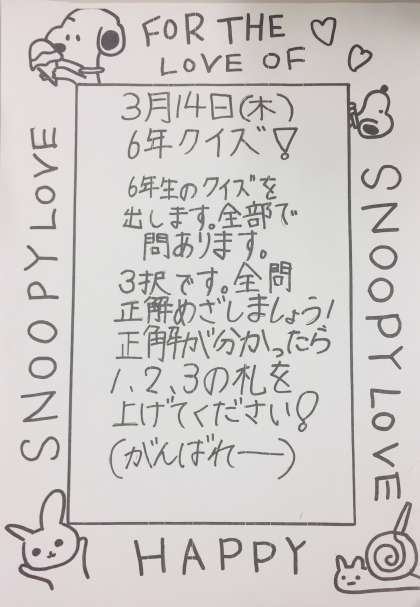 FOR THE
LOVE OF
SNOOPY LOVE
3月14日(木)
6年クイズ!
6年生のクイズを
出します。全部で
問あります。
3択です。全問
正解めざしましょう!
正解が分かったら
1、2、3の札を
上げてください!
(がんばれー)
SNOOPY LOVE
HAPPY